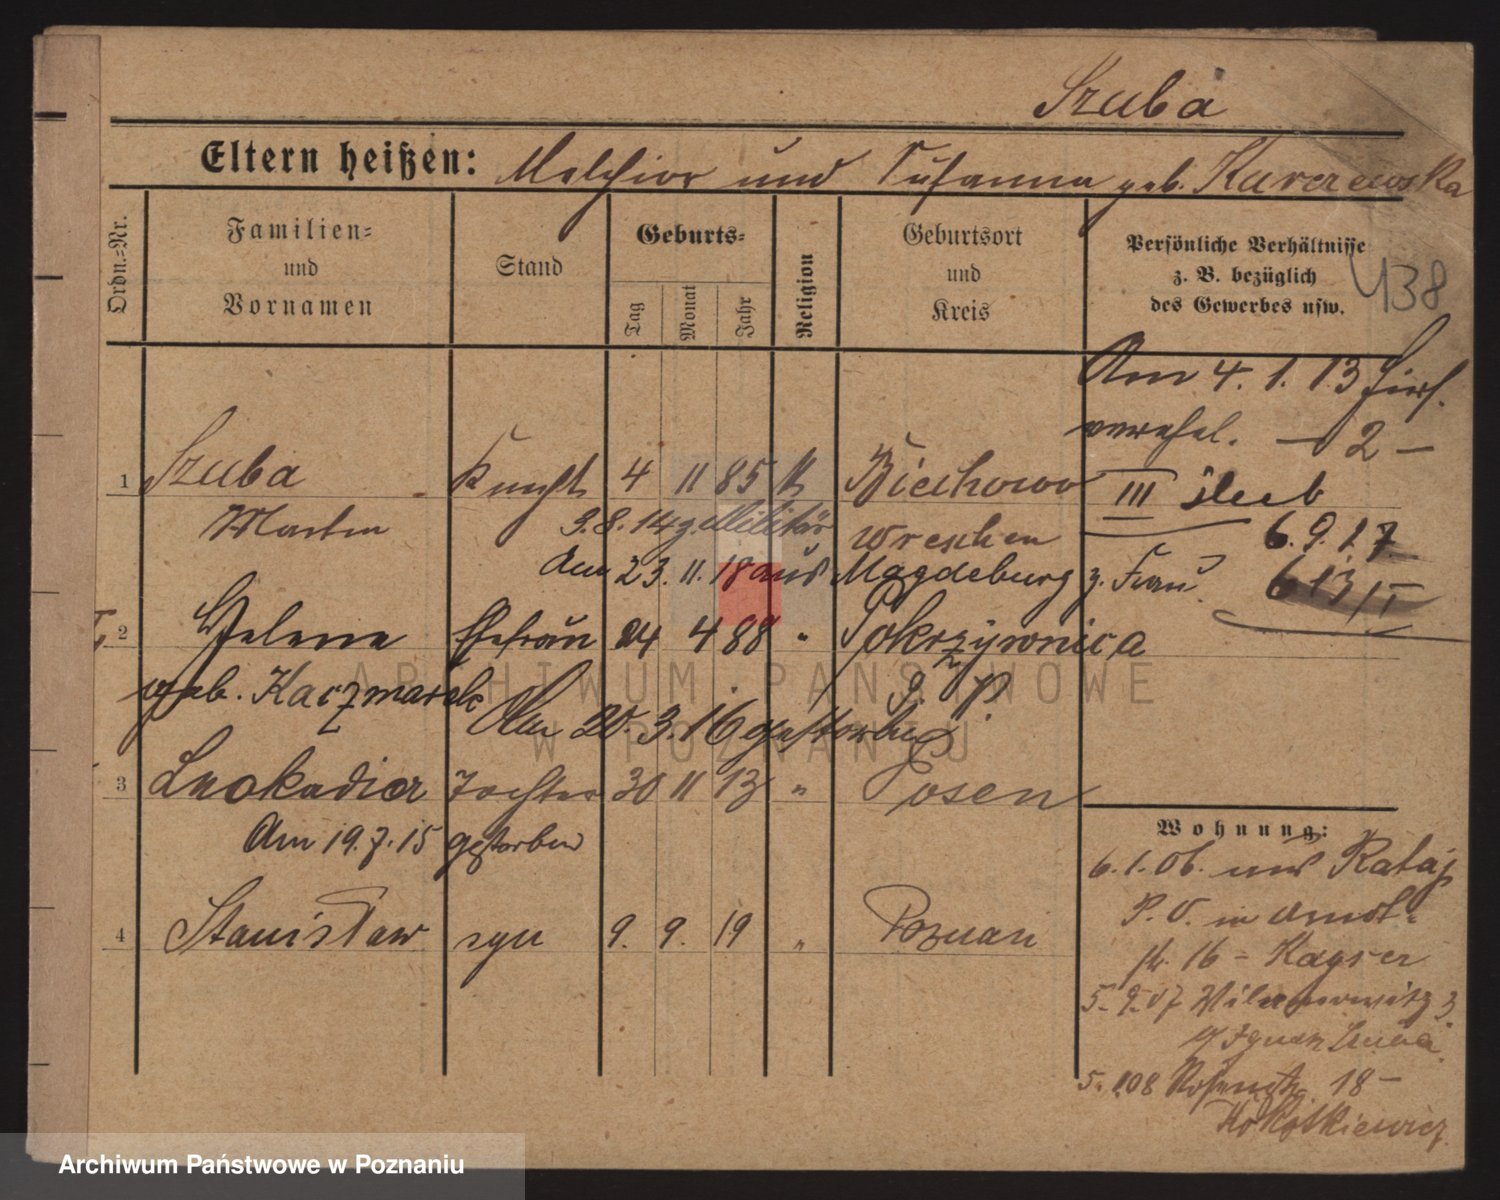 Szuba
Eltern heißen: Melchior und Susanna geb. Karczewska
Ordn.-Nr.
Familien- und Vornamen
Stand
Geburts-
Tag
Monat
Jahr
Religion
Geburtsort und Kreis
Persönliche Verhältnisse
z. B. bezüglich
des Gewerbes usw.
438
Am 4. 1. 13
verehel. — 2 —
1 Szuba Knecht 4 11 85 k Biechowo
III sleeb
Martin 3.8.14 z. Militär Wreschen
6.9.17
Am 23.11.18 aus Magdeburg z. Frau
613/I
2 Helene Ehefrau 24 4 88 " Pokrzywnica
geb. Kaczmarek
Am 20.3.16 gestorben
3 Leokadia Tochter 30 11 13 " Posen
Am 19.7.15 gestorben
4 Stanisław syn 9. 9. 19 " Poznan
Wohnung:
6.1.06. aus Rataj
P. O. in Arndt-
str. 16 - Kayser
5.9.07
Ignatz Szuba
18 -
ARCHIWUM PAŃSTWOWE
W POZNANIU
Archiwum Państwowe w Poznaniu